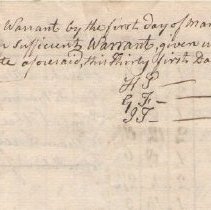 Warrant by the first day of Mar
Sufficient Warrant, given u
aforesaid, this Thirty first Da
H S —
G F —
J F —